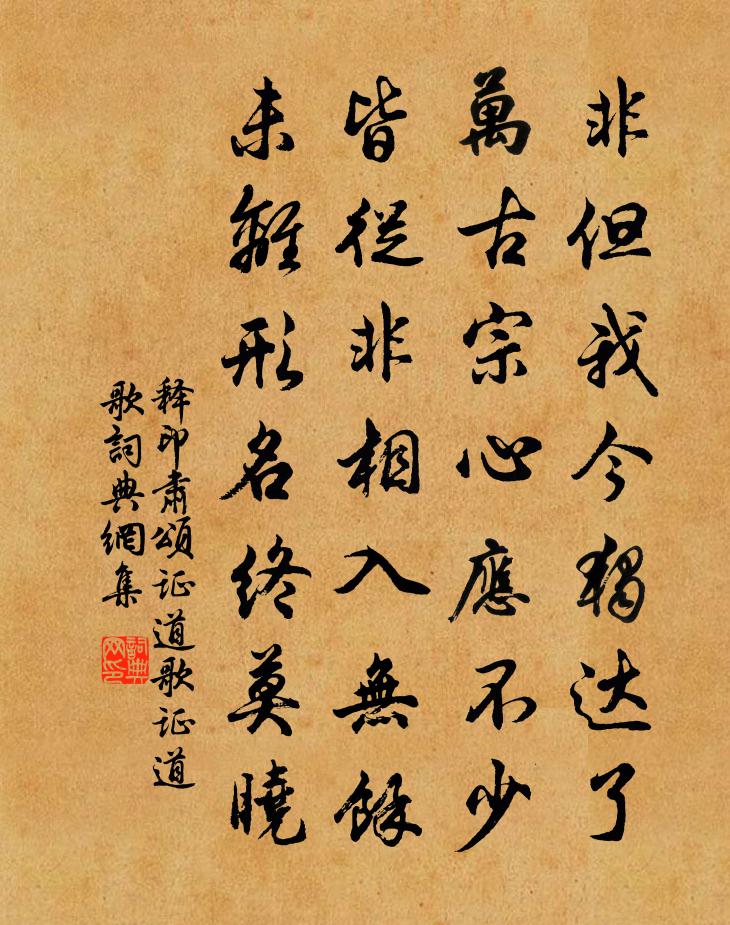 非但我今獨达了
萬古宗心應不少
皆從非相入無餘
未離形名終莫曉
释印肅頌证道歌证道
歌詞典網集
詞典
网印